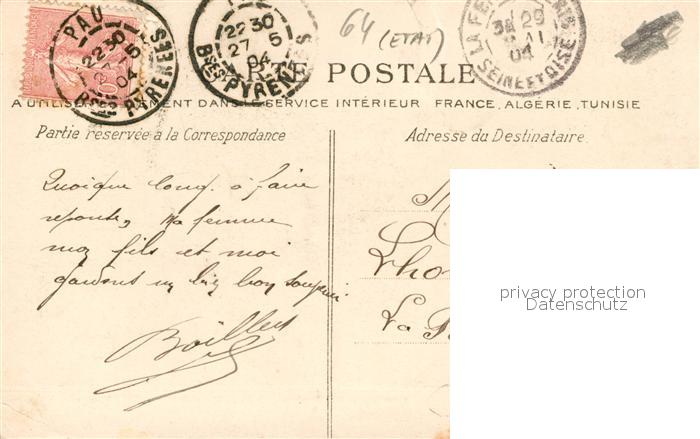 PAU
22 30
27-5
04
Bses PYRENEES
22 30
27 5
04
Bses PYRENEES
64 (ETAT)
LA FE
29
04
SEINE ET OISE
CARTE POSTALE
A UTILISER SEULEMENT DANS LE SERVICE INTÉRIEUR FRANCE, ALGÉRIE, TUNISIE
Partie réservée à la Correspondance
Adresse du Destinataire
Quoique long à faire
reponse, ma femme
mon fils et moi
gardent un bien bon souvenir
Boillet
M
Lho
La
privacy protection
Datenschutz